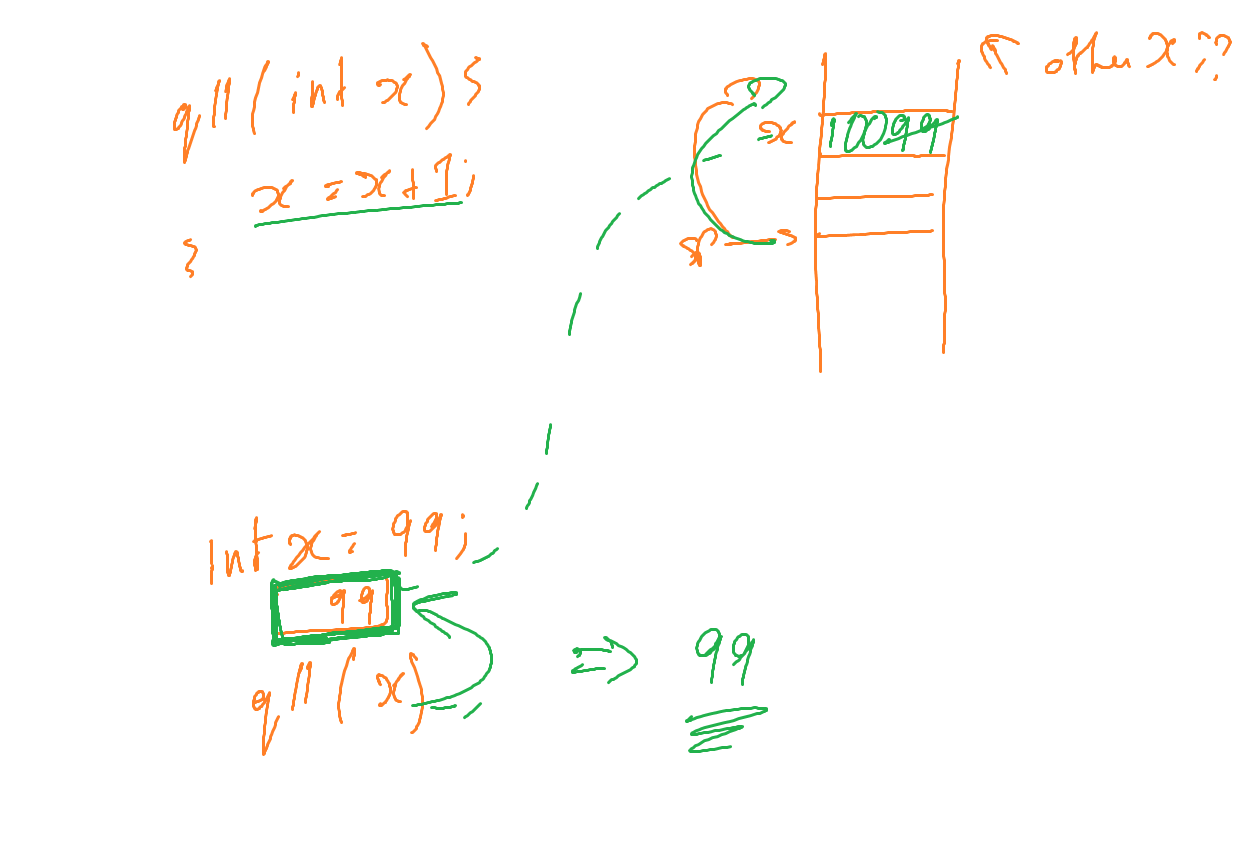 q11(int x){
x = x+1;
}
other x ??
x
10099
x
int x = 99;
99
q11(x)
⇒ 99